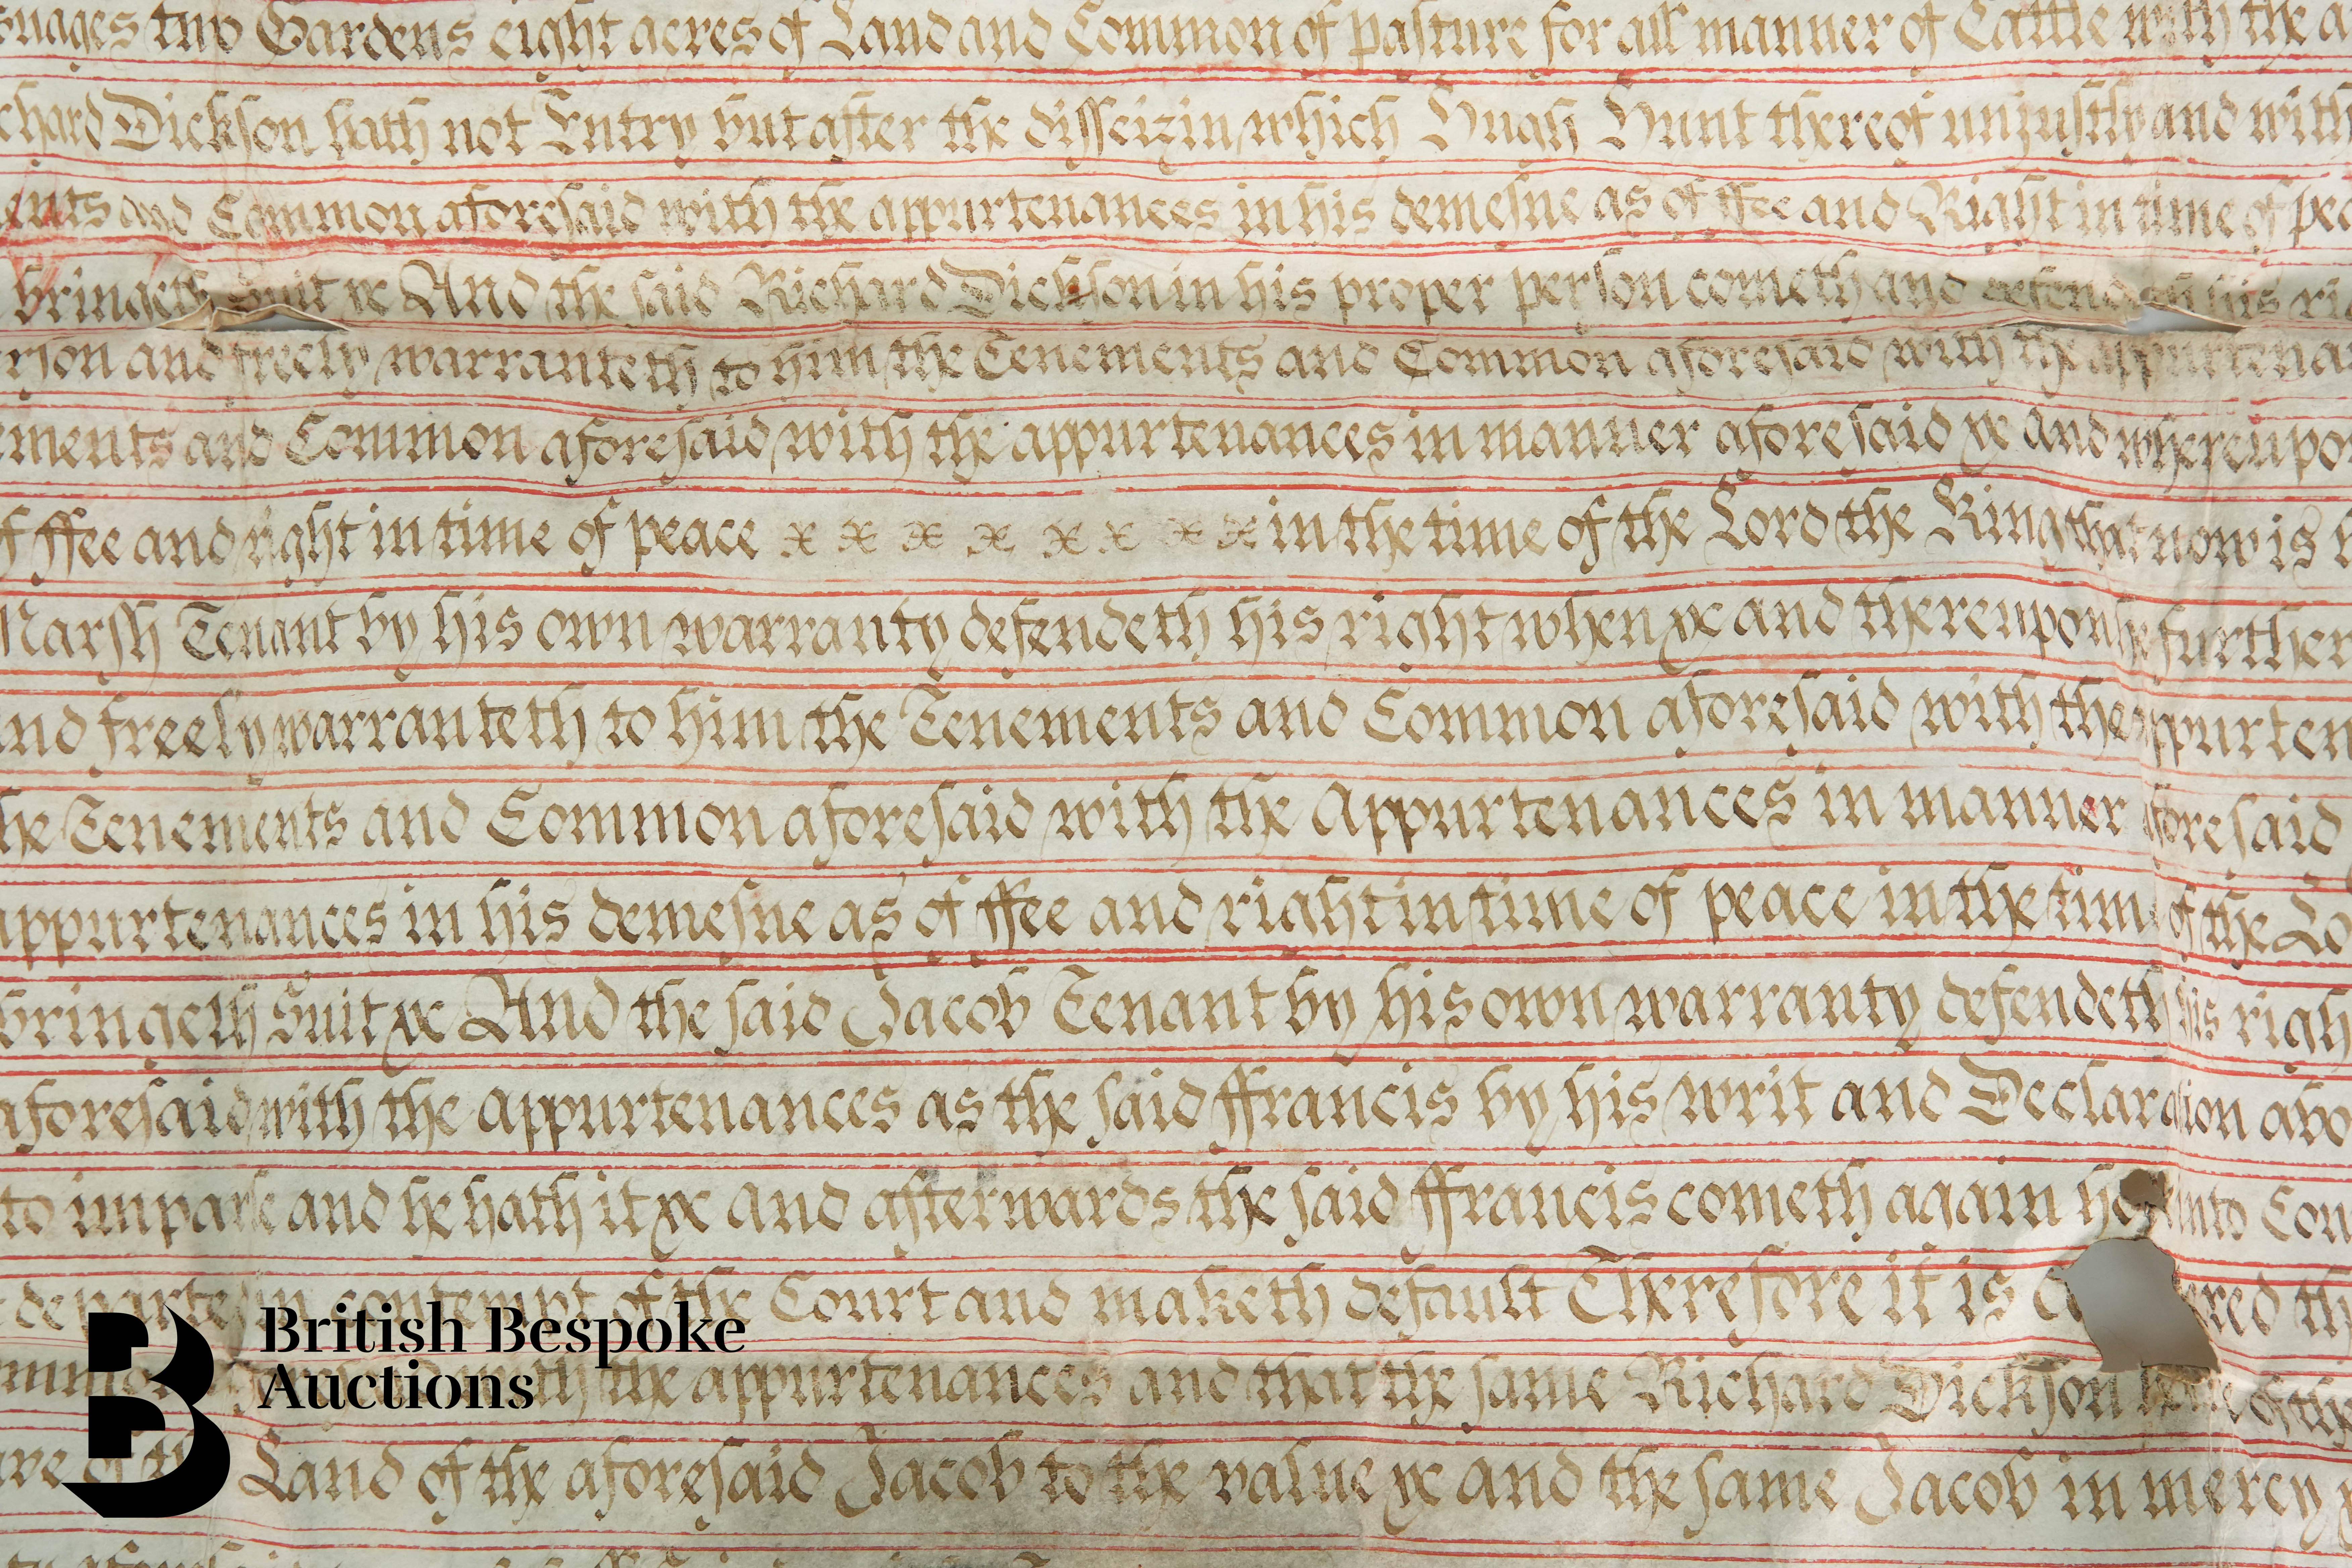 two Gardens eight acres of Land and Common of pasture for all manner of Cattle with the
Dickson hath not Entry but after the disseizin which Hugh Hunt thereof unjustly and with
and Common aforesaid with the appurtenances in his demesne as of ffee and Right in time of
bringeth Suit &c And the said Richard Dickson in his proper person cometh and defendeth his
and freely warranteth to him the Tenements and Common aforesaid with the
and Common aforesaid with the appurtenances in manner aforesaid &c and
of ffee and right in time of peace x x x x x x x x in the time of the Lord the King that now is
Marsh Tenant by his own warranty defendeth his right when &c and thereupon he further
freely warranteth to him the Tenements and Common aforesaid with the
Tenements and Common aforesaid with the Appurtenances in manner aforesaid
appurtenances in his demesne as of ffee and right in time of peace in the time of the
bringeth Suit &c And the said Jacob Tenant by his own warranty defendeth his
aforesaid with the appurtenances as the said ffrancis by his writ and Declaration
to imparle and he hath it &c And afterwards the said ffrancis cometh again
in contempt of the Court and maketh default Therefore it is
British Bespoke
Auctions
the appurtenances and that the same Richard Dickson
Land of the aforesaid Jacob to the value &c and the same Jacob in mercy